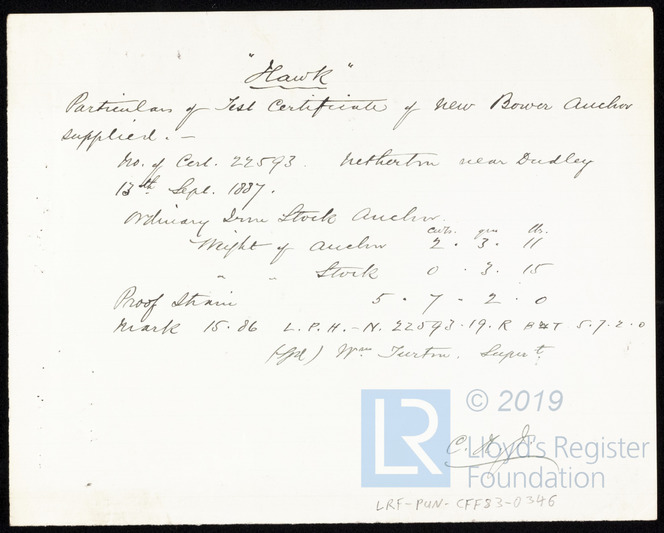 "Hawk"
Particulars of Test Certificate of New Bower Anchor
supplied. —
No. of Cert. 22593. Netherton near Dudley
13th Sept. 1887.
Ordinary Iron Stock Anchor.
cwts. qrs lbs.
Weight of Anchor 2 . 3 . 11
" " Stock 0 . 3 . 15
Proof Strain 5 . 7 - 2 . 0
Mark 15.86 L.P.H.-N. 22593.19.R 5.7.2.0
(Sgd) Wm Turton. Supert.
C. H. J.
LR © 2019
Lloyd's Register
Foundation
LRF-PUN-CFF83-0346